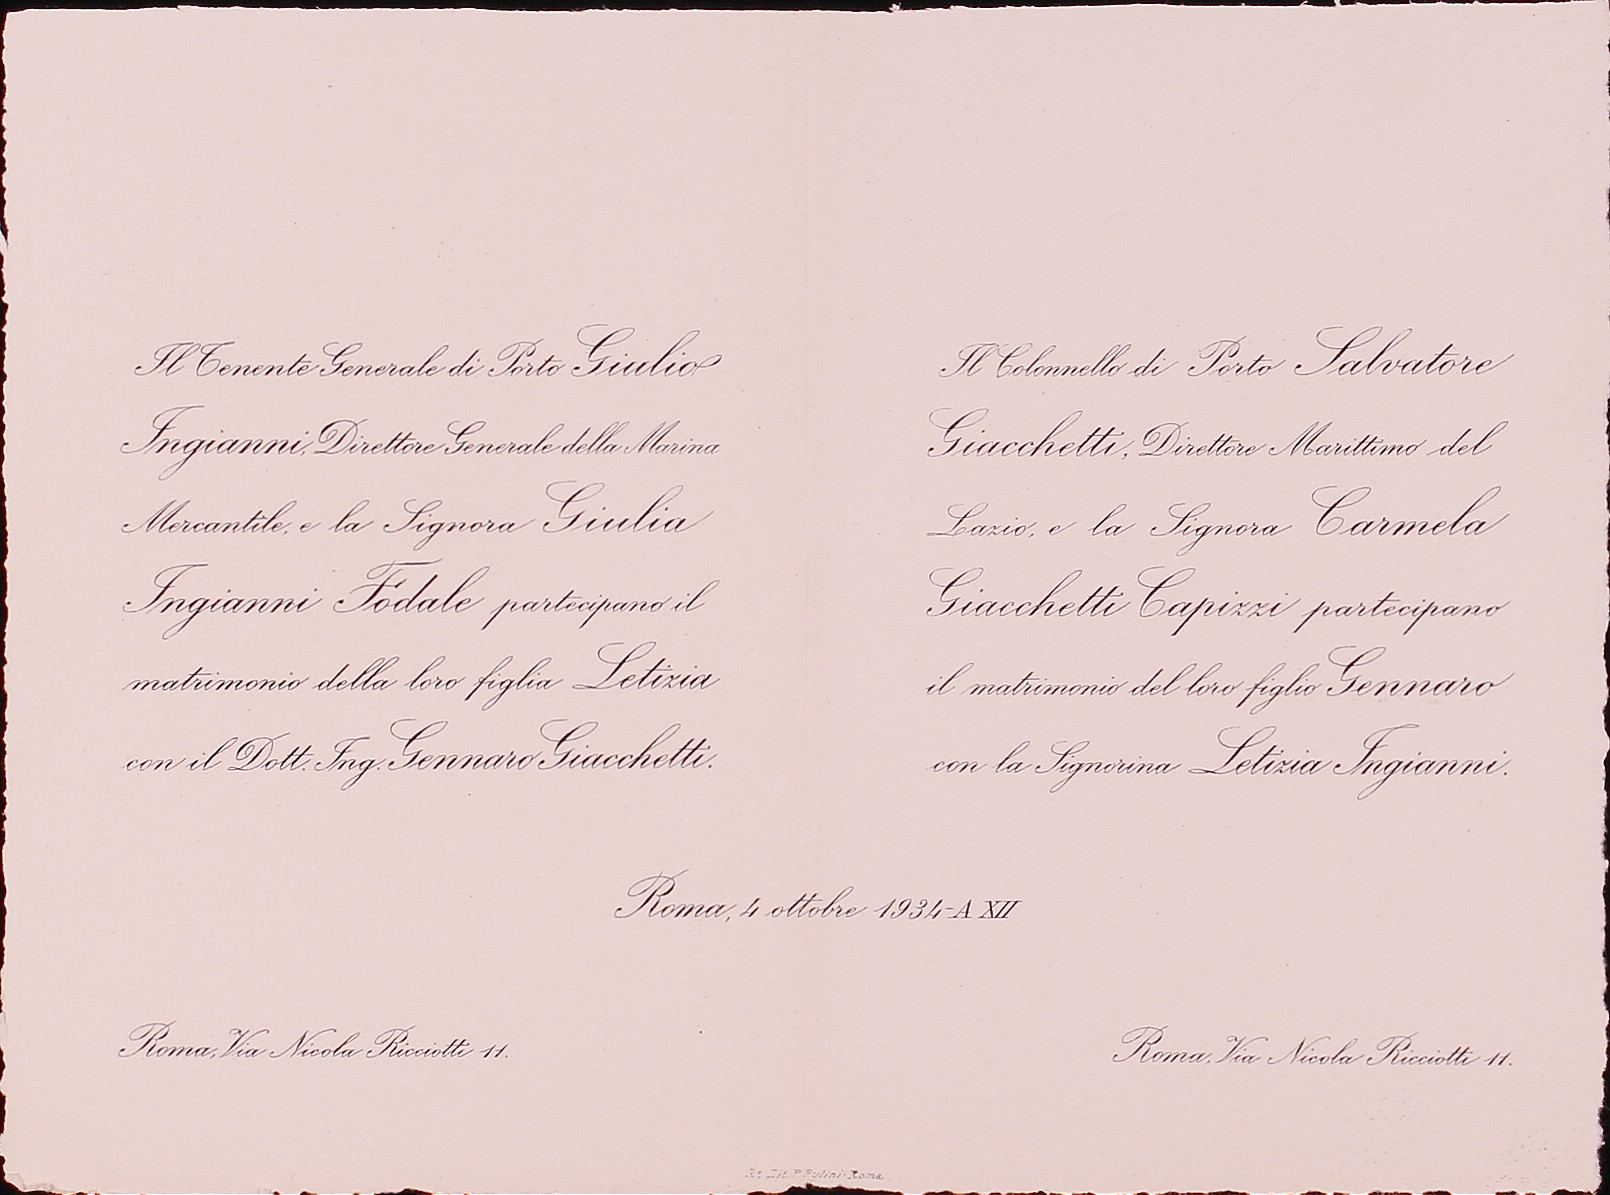 Il Tenente Generale di Porto Giulio
Ingianni, Direttore Generale della Marina
Mercantile, e la Signora Giulia
Ingianni Fodale partecipano il
matrimonio della loro figlia Letizia
con il Dott. Ing. Gennaro Giacchetti.
Il Colonnello di Porto Salvatore
Giacchetti, Direttore Marittimo del
Lazio, e la Signora Carmela
Giacchetti Capizzi partecipano
il matrimonio del loro figlio Gennaro
con la Signorina Letizia Ingianni.
Roma, 4 ottobre 1934-A XII
Roma, Via Nicola Ricciotti 11.
Roma, Via Nicola Ricciotti 11.
Roma